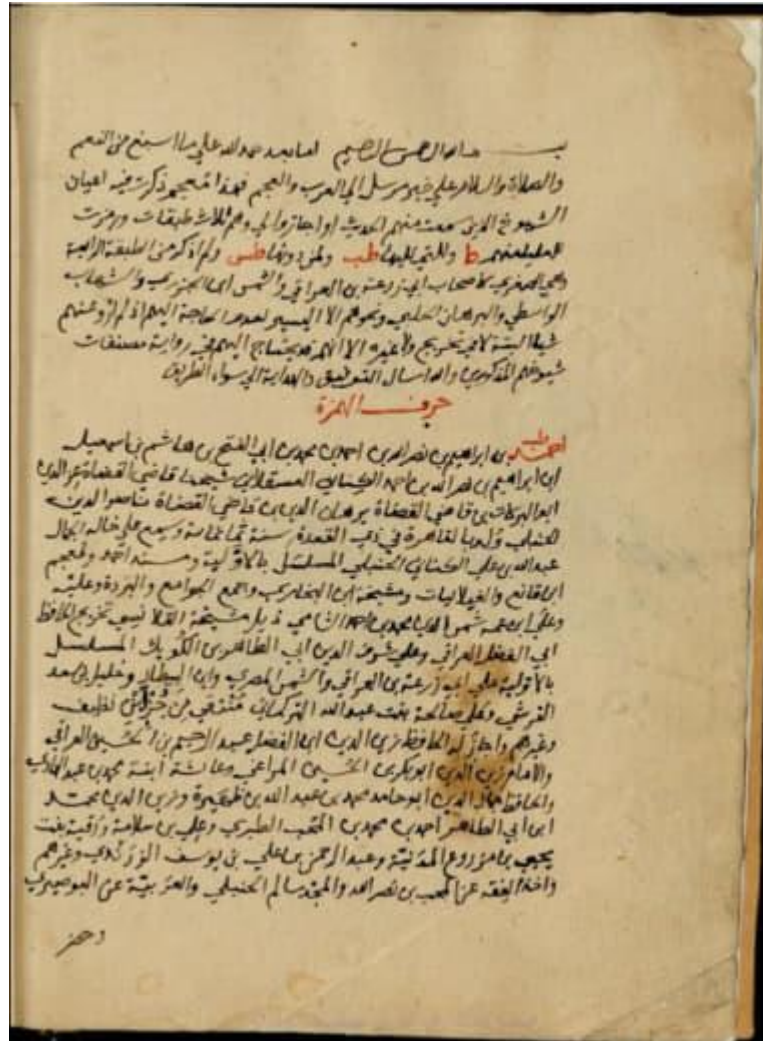 بسم الله الرحمن الرحيم اما بعد حمد الله على ما اسبغ من النعم
والصلاة والسلام على خير مرسل الى العرب والعجم فهذا معجم ذكرت فيه اعيان
الشيوخ الذين سمعت منهم الحديث او اجازوا لي وهم ثلاث طبقات ورمزت
للعليا منهم ط وللتي تليها طب ولمن دونها طس ولم اذكر من الطبقة الرابعة
وهي الصغرى كاصحاب ابي زرعة بن العراقي والشمس ابن الجزري والشهاب
الواسطي والبرهان الحلبي ونحوهم الا اليسير لعدم الحاجة اليهم اذ لم ارو عنهم
شيئا البتة لا في تخريج ولا غيره الا انهم قد يحتاج اليهم في رواية مصنفات
شيوخهم المذكورين والله اسال التوفيق والهداية الى سواء الطريق
حرف الهمزة
احمد طب بن ابراهيم بن نصر الله بن احمد بن محمد بن ابي الفتح بن هاشم بن اسمعيل
ابن ابراهيم بن نصر الله بن احمد الكناني العسقلاني شيخنا قاضي القضاة عز الدين
ابو البركات بن قاضي القضاة برهان الدين بن قاضي القضاة ناصر الدين
الحنبلي ولد بالقاهرة في ذي القعدة سنة ثمانمائة وسمع على خاله الجمال
عبد الله بن علي الكناني الحنبلي المسلسل بالاولية ومسند احمد ومعجم
ابن قانع والغيلانيات ومشيخة ابن البخاري واجمع الجوامع والبردة وعليه
وعلى ابن عمه شمس الدين محمد بن احمد الشامي ذيل مشيخة القلانسي تخريج الحافظ
ابي الفضل العراقي وعلى شرف الدين ابي الطاهر بن الكويك المسلسل
بالاولية على ابي زرعة بن العراقي والشمس المصري وابن البيطار وخليل بن سعد
القرشي وعلى صالحة بنت عبد الله التركماني منتقى من جزء لظيف
وغيرهم واجاز له الحافظ زين الدين ابي الفضل عبد الرحيم بن الحسين العراقي
والامام زين الدين ابو بكر بن الحسين المراغي وعائشة ابنة محمد بن عبد الهادي
والحافظ جمال الدين ابو حامد محمد بن عبد الله بن ظهيرة وزين الدين محمد
ابن ابي الطاهر احمد بن محمد بن المحب الطبري وعلي بن سلامة ورقية بنت
يحيى بن مزروع المدنية وعبد الرحمن بن علي بن يوسف الزرندي وغيرهم
واخذ الفقه عن المحب بن نصر الله والمجد سالم الحنبلي والعربية عن البوصيري